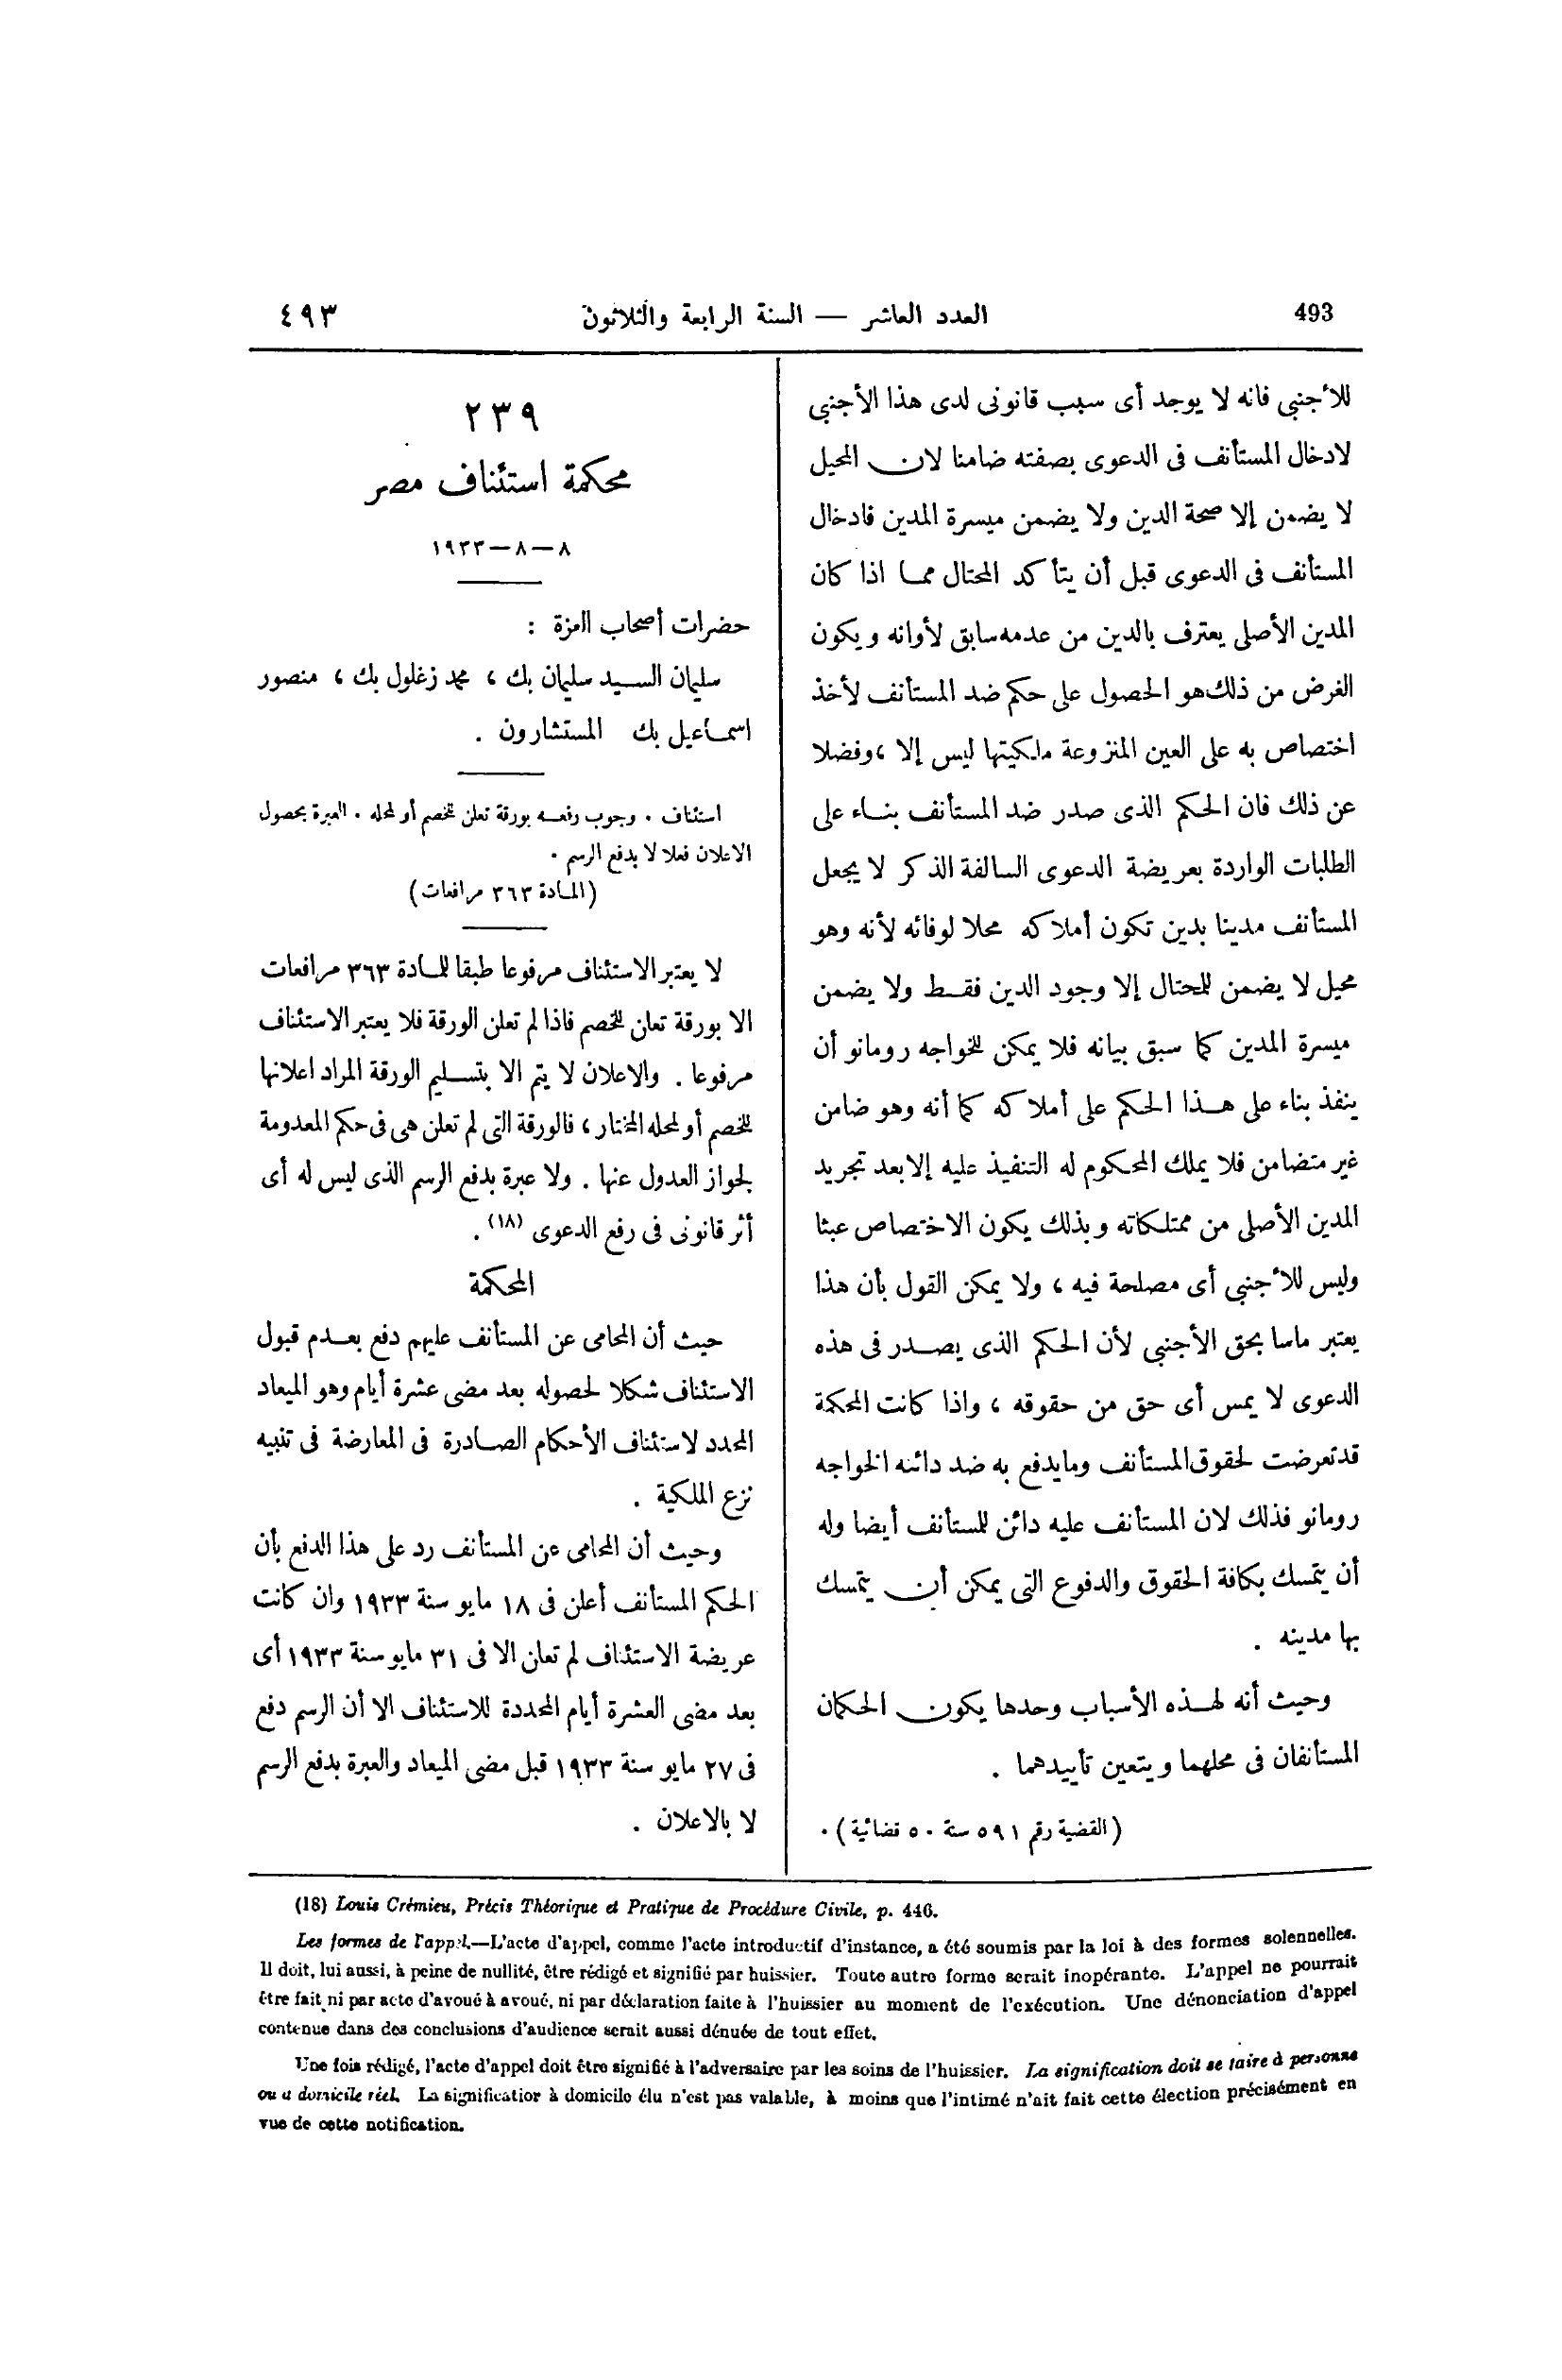 493
العدد العاشر — السنة الرابعة والثلاثون
٤٩٣
للأجنبى فانه لا يوجد أى سبب قانونى لدى هذا الأجنبى
لادخال المستأنف فى الدعوى بصفته ضامنا لان المحيل
لا يضمن إلا صحة الدين ولا يضمن ميسرة المدين فادخال
المستأنف فى الدعوى قبل أن يتأكد المحتال مما اذا كان
المدين الأصلى يعترف بالدين من عدمه سابق لأوانه ويكون
الغرض من ذلك هو الحصول على حكم ضد المستأنف لأخذ
اختصاص به على العين المنزوعة ملكيتها ليس إلا ، وفضلا
عن ذلك فان الحكم الذى صدر ضد المستأنف بناء على
الطلبات الواردة بعريضة الدعوى السالفة الذكر لا يجعل
المستأنف مدينا بدين تكون أملاكه محلا لوفائه لأنه وهو
محيل لا يضمن للمحتال إلا وجود الدين فقط ولا يضمن
ميسرة المدين كما سبق بيانه فلا يمكن للخواجه رومانو أن
ينفذ بناء على هذا الحكم على أملاكه كما أنه وهو ضامن
غير متضامن فلا يملك المحكوم له التنفيذ عليه إلا بعد تجريد
المدين الأصلى من ممتلكاته وبذلك يكون الاختصاص عبثا
وليس للأجنبى أى مصلحة فيه ، ولا يمكن القول بأن هذا
يعتبر ماسا بحق الأجنبى لأن الحكم الذى يصدر فى هذه
الدعوى لا يمس أى حق من حقوقه ، واذا كانت المحكمة
قد تعرضت لحقوق المستأنف وما يدفع به ضد دائنه الخواجه
رومانو فذلك لان المستأنف عليه دائن للمستأنف أيضا وله
أن يتمسك بكافة الحقوق والدفوع التى يمكن أن يتمسك
بها مدينه .
وحيث أنه لهذه الأسباب وحدها يكون الحكمان
المستأنفان فى محلهما ويتعين تأييدهما .
(القضية رقم ٥٩١ سنة ٥٠ قضائية) .
٢٣٩
محكمة استئناف مصر
٨—٨—١٩٣٣
حضرات أصحاب العزة :
سليمان السيد سليمان بك ، محمد زغلول بك ، منصور
اسماعيل بك المستشارون .
استئناف . وجوب رفعه بورقة تعلن للخصم أو لمحله . العبرة بحصول
الاعلان فعلا لا بدفع الرسم .
(المادة ٣٦٣ مرافعات)
لا يعتبر الاستئناف مرفوعا طبقا للمادة ٣٦٣ مرافعات
الا بورقة تعلن للخصم فاذا لم تعلن الورقة فلا يعتبر الاستئناف
مرفوعا . والاعلان لا يتم الا بتسليم الورقة المراد اعلانها
للخصم أو لمحله المختار ، فالورقة التى لم تعلن هى فى حكم المعدومة
لجواز العدول عنها . ولا عبرة بدفع الرسم الذى ليس له أى
أثر قانونى فى رفع الدعوى (١٨) .
المحكمة
حيث أن المحامى عن المستأنف عليهم دفع بعدم قبول
الاستئناف شكلا لحصوله بعد مضى عشرة أيام وهو الميعاد
المحدد لاستئناف الأحكام الصادرة فى المعارضة فى تنبيه
نزع الملكية .
وحيث أن المحامى عن المستأنف رد على هذا الدفع بأن
الحكم المستأنف أعلن فى ١٨ مايو سنة ١٩٣٣ وان كانت
عريضة الاستئناف لم تعلن الا فى ٣١ مايو سنة ١٩٣٣ أى
بعد مضى العشرة أيام المحددة للاستئناف الا أن الرسم دفع
فى ٢٧ مايو سنة ١٩٣٣ قبل مضى الميعاد والعبرة بدفع الرسم
لا بالاعلان .
(18) Louis Crémieu, Précis Théorique et Pratique de Procédure Civile, p. 446.
Les formes de l'appel.—L'acte d'appel, comme l'acte introductif d'instance, a été soumis par la loi à des formes solennelles.
Il doit, lui aussi, à peine de nullité, être rédigé et signifié par huissier. Toute autre forme serait inopérante. L'appel ne pourrait
être fait ni par acte d'avoué à avoué, ni par déclaration faite à l'huissier au moment de l'exécution. Une dénonciation d'appel
contenue dans des conclusions d'audience serait aussi dénuée de tout effet.
Une fois rédigé, l'acte d'appel doit être signifié à l'adversaire par les soins de l'huissier. La signification doit se faire à personne
ou a domicile réel. La signification à domicile élu n'est pas valable, à moins que l'intimé n'ait fait cette élection précisément en
vue de cette notification.